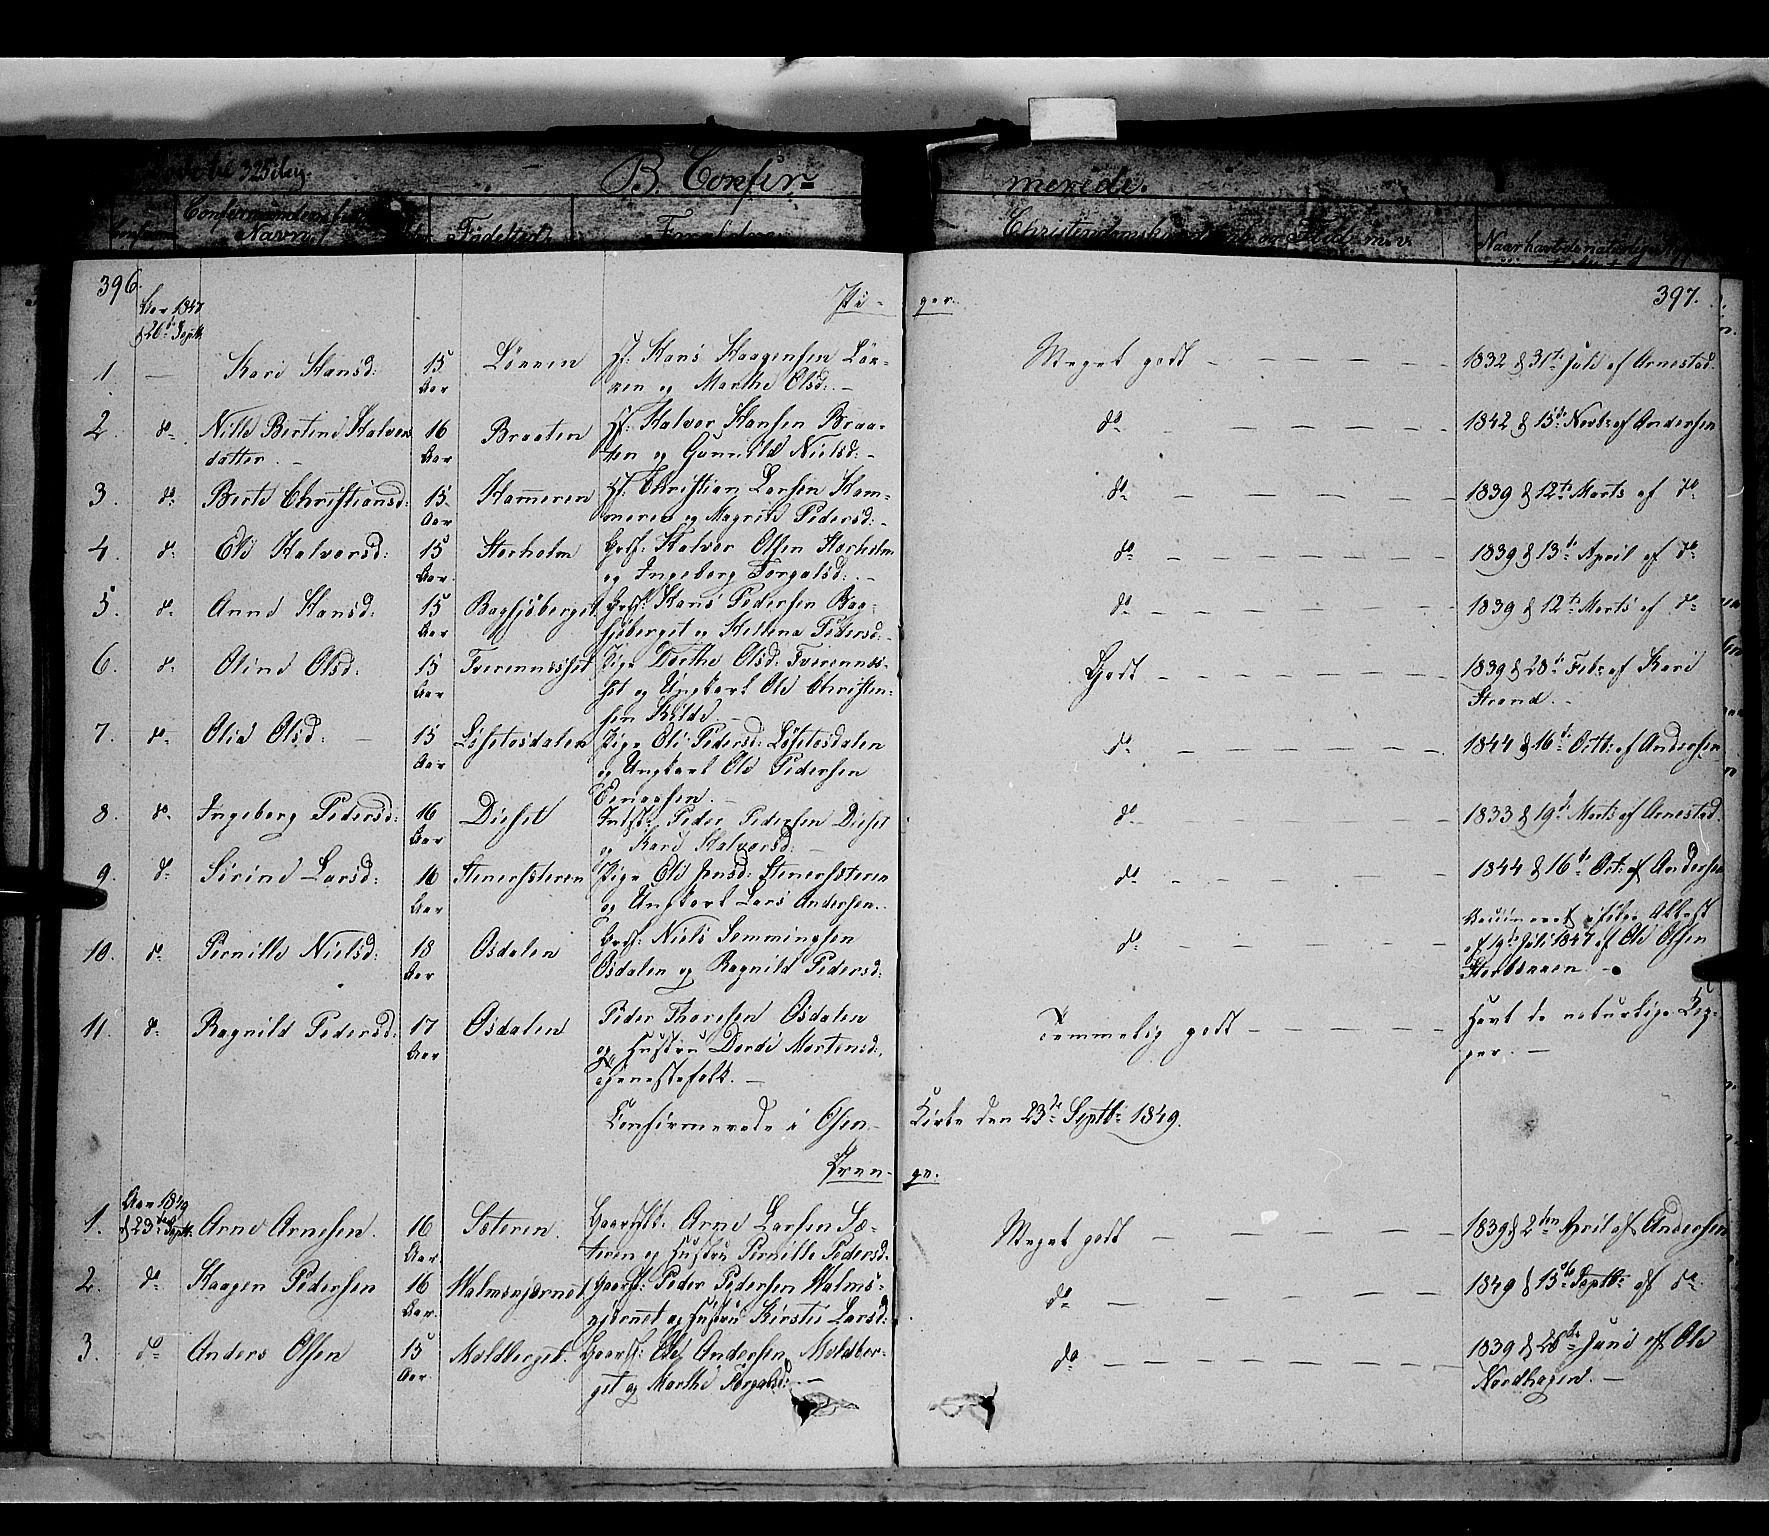 B. Confir=
merede.
Confirmandens
Navn
Fødested
Christendomskundskab og Flid m.v.
Naar havt de naturlige
396.
397.
Aar 1847
d 26de Septb:
Pi-
ger.
1 — Kari Hansd: 15 Aar Løvven
Hans Haagensen Løv-
ven og Marthe Olsd: —
Meget godt — — — — —
1832 d 31te Juli af Arnestad.
2. do Nille Bertine Halvors
datter. — 16 Aar Braaten
Halvor Hansen Braa-
ten og Gunnild Nielsd: —
do — — — — —
1842 d 15de Novbr af Andersen
3. do Berte Christiansd: 15 Aar Hammeren
Christian Larsen Ham-
meren og Magrite Pedersd: —
do — — — — —
1839 d 12te Marts af do
4. do Eli Halvorsd: 15 Aar. Storholm
Halvor Olsen Storholm
og Ingeborg Torgalsd: —
do — — — — —
1839 d 13de April af do
5. do Anne Hansd: 15 Aar Bagsjøberget
Hans Pedersen Bag-
sjøberget og Hellena Pedersd: —
do — — — — —
1839 d 12te Marts af do
6. do Oline Olsd: 15 Aar Tverennesset
Pige Dorthe Olsd: Tverennes-
set og Ungkarl Ole Christen-
sen Kilde —
Godt — — — — —
1839 d 28de Febr af Kari
Strand. —
7. do Olia Olsd: — 15 Aar Løsetosdalen
Pige Eli Pedersd: Løsetosdalen
og Ungkarl Ole Pedersen
do — — — — —
1844 d 16de Octb: af Andersen
8. do Ingeborg Pedersd: 16 Aar Dieset
Inds: Peder Pedersen Dieset
og Kari Halvorsd: —
do — — — — —
1833 d 19de Marts af Arnestad.
9. do Sirine Larsd: 16 Aar Stenersæteren
Pige Eli Jensd: Steenersæteren
og Ungkarl Lars Andersen.
do — — — — —
1844 d 16de Oct: af Andersen
10. do Pernille Nielsd: 18 Aar Osdalen
Niels Semmingsen
Osdalen og Ragnild Pedersd:
do — — — — —
Vaccineret ifølge Attest
af 19de Juli 1847 af Ole Olsen
11. do Ragnild Pedersd: 17 Aar Osdalen
Peder Thoresen Osdalen
og Hustru Dorde Mortensd:,
Tjenestefolk. —
Temmelig godt — — — — —
Havt de naturlige Kop-
per. —
Confirmerede i Osen
Kirke den 23de Septb: 1849.
Dren-
ge.
Aar 1849
d 23de Septb:
1. Arne Arnesen. 16 Aar Sæteren.
Gaardb: Arne Larsen Sæ-
teren og Hustru Pernille Pedersd:
Meget godt — — — — —
1839 d 2den April af Andersen
2. do Haagen Pedersen 16 Aar.
Gaardb: Peder Pedersen
og Hustru Kirstie Larsd:
do — — — — —
1849 d 15de Septb: af do
3. do Anders Olsen 15 Aar Moldberget.
Gaardb: Ole Andersen Moldber-
get og Marthe Torgalsd: —
do — — — — —
1839 d 28de Juni af Ole
Nordhagen. —